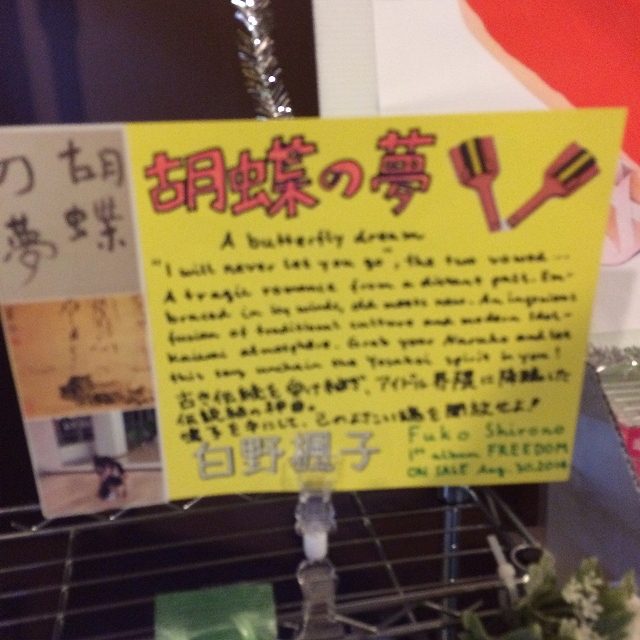 胡蝶の夢
胡蝶の夢
A butterfly dream
"I will never let you go", the two vowed --
A tragic romance from a distant past. Em-
braced in by winds, old meets new. An ingenious
fusion of traditional culture and modern Idol-
Kaiwai atmosphere. Grab your Naruko and let
this song unchain the Yosakoi spirit in you!
古き伝統を受け継ぎ、アイドル界隈に降臨した
伝統の
鳴子を手にして、この
を開放せよ!
白野楓子
Fuko Shirono
1st album FREEDOM
ON SALE Aug. 30. 2014